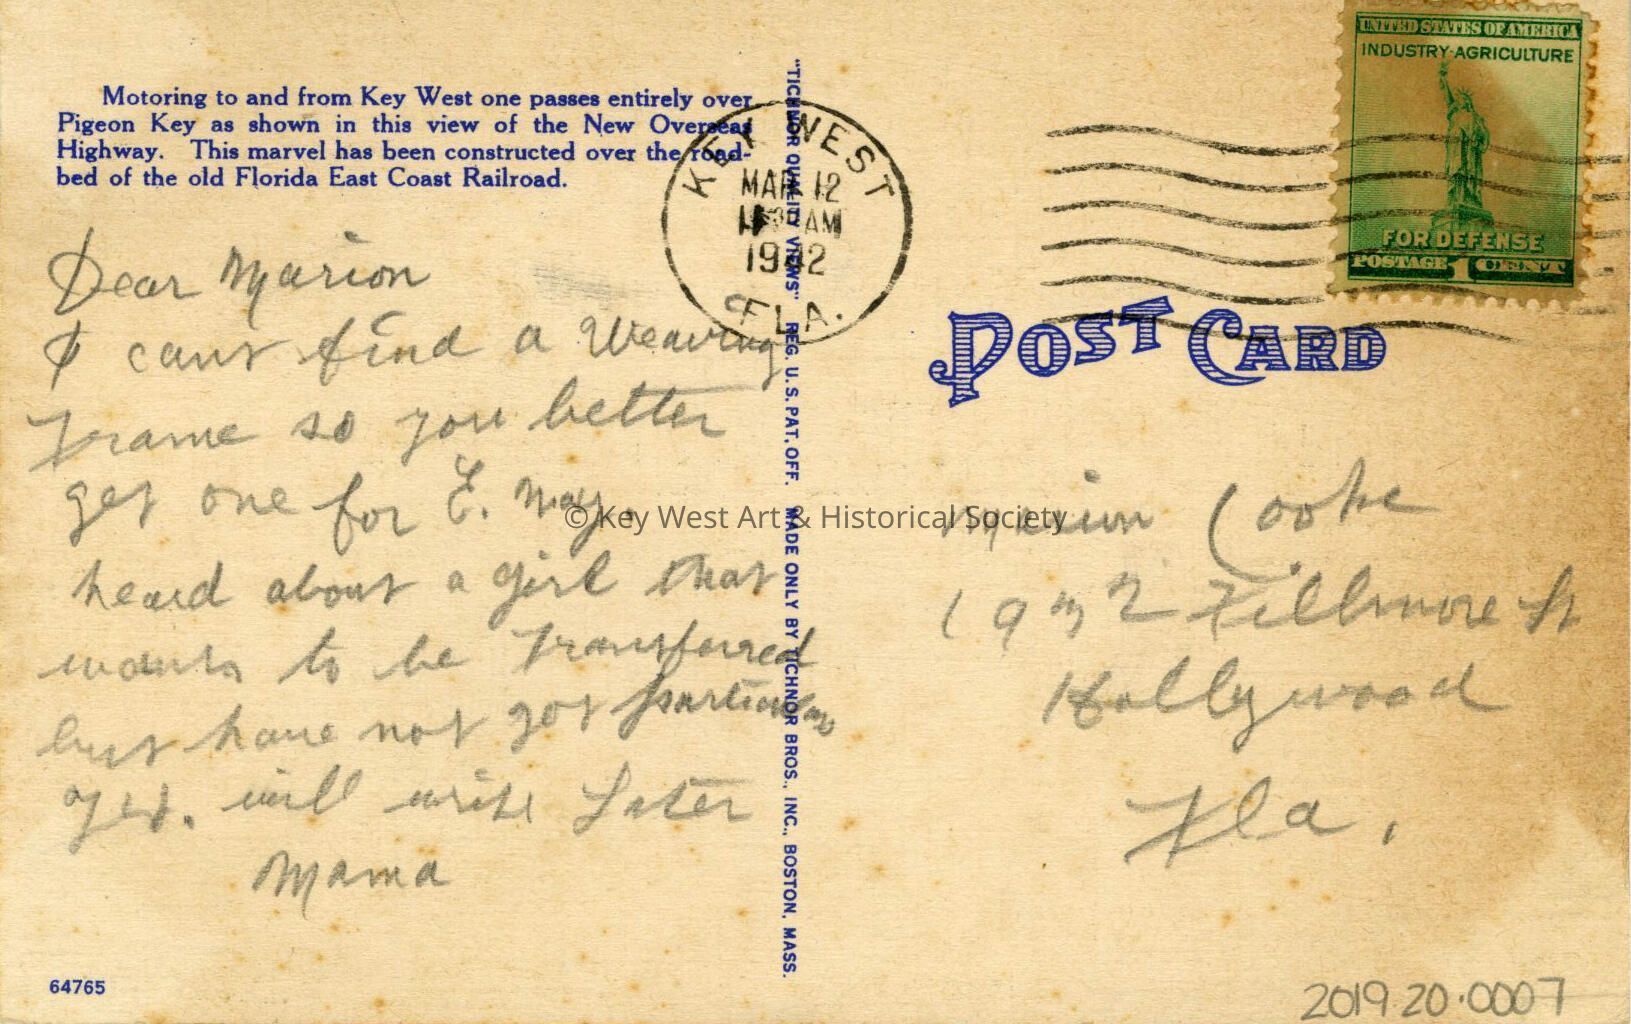 Motoring to and from Key West one passes entirely over
Pigeon Key as shown in this view of the New Overseas
Highway. This marvel has been constructed over the road-
bed of the old Florida East Coast Railroad.
Dear Marion
I cant find a Weaving
Frame so you better
get one for E. May.
heard about a girl that
wants to be Transferred
but have not got particulars
yet. will write Later
Mama
64765
"TICHNOR QUALITY VIEWS" REG. U. S. PAT. OFF. MADE ONLY BY TICHNOR BROS., INC., BOSTON, MASS.
KEY WEST
MAR 12
AM
1942
FLA.
UNITED STATES OF AMERICA
INDUSTRY·AGRICULTURE
FOR DEFENSE
POSTAGE 1 CENT
POST CARD
© Key West Art & Historical Society
Marion Cooke
1932 Fillmore St
Hollywood
Fla.
2019.20.0007